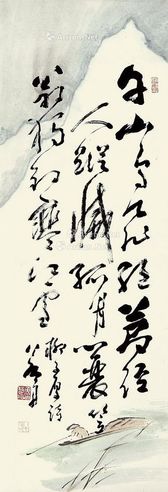 千山鳥飛絕萬徑
人蹤滅孤舟蓑笠
翁獨釣寒江雪
柳宗元詩